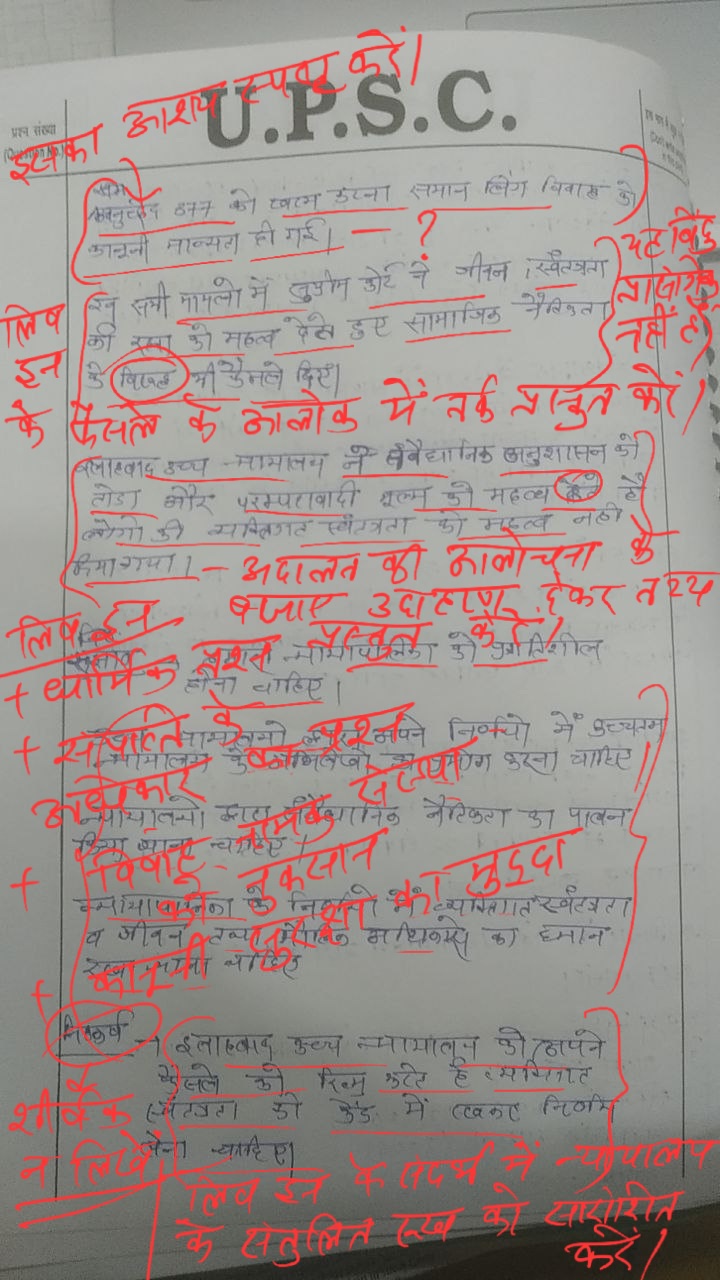 इसका आशय स्पष्ट करें।
U.P.S.C.
प्रश्न संख्या
(Question No.)
अनुच्छेद 377 को खत्म करना समान लिंग विवाह को
कानूनी मान्यता दी गई। — ?
यह बिंदु
प्रासंगिक
नहीं है।
इन सभी मामलो में सुप्रीम कोर्ट ने जीवन, स्वतंत्रता
की रक्षा को महत्व देते हुए सामाजिक नैतिकता
के विरुद्ध भी फैसले दिए।
लिव
इन
के फैसले के आलोक में तर्क प्रस्तुत करें।
इलाहबाद उच्च न्यायालय ने संवैधानिक अनुशासन को
तोडा और परम्परावादी मूल्य को महत्व देते है
लोगो की व्यक्तिगत स्वंतत्रता को महत्व नही
दिया गया। — अदालत की आलोचना के
बजाए उदाहरण देकर तथ्य
प्रस्तुत करें।
लिव इन
+ धार्मिक प्रश्न
न्यायपालिका को प्रगतिशील
होना चाहिए।
+ संपत्ति के
अधिकार का प्रश्न
अपने निर्णयो में उच्चतम
न्यायालय के
प्रयोग करना चाहिए
न्यायालयो द्वारा संवैधानिक नैतिकता का पालन
किया जाना चाहिए।
+ विवाह नामक संस्था
को नुकसान
न्यायपालिका के निर्णयो में व्यक्तिगत स्वंतत्रता
व जीवन तथा मौलिक अधिकारो का ध्यान
रखा जाना चाहिए
+ कानूनी सुरक्षा का मुद्दा
निष्कर्ष → इलाहबाद उच्च न्यायालय को अपने
फैसले को रिव्यु करते है व्यक्तिगत
स्वंतत्रता को केंद्र में रखकर निर्णय
लेना चाहिए।
के
शीर्षक
न लिखें
लिव इन के संदर्भ में न्यायालय
के संतुलित रूख को सारांशित
करें।